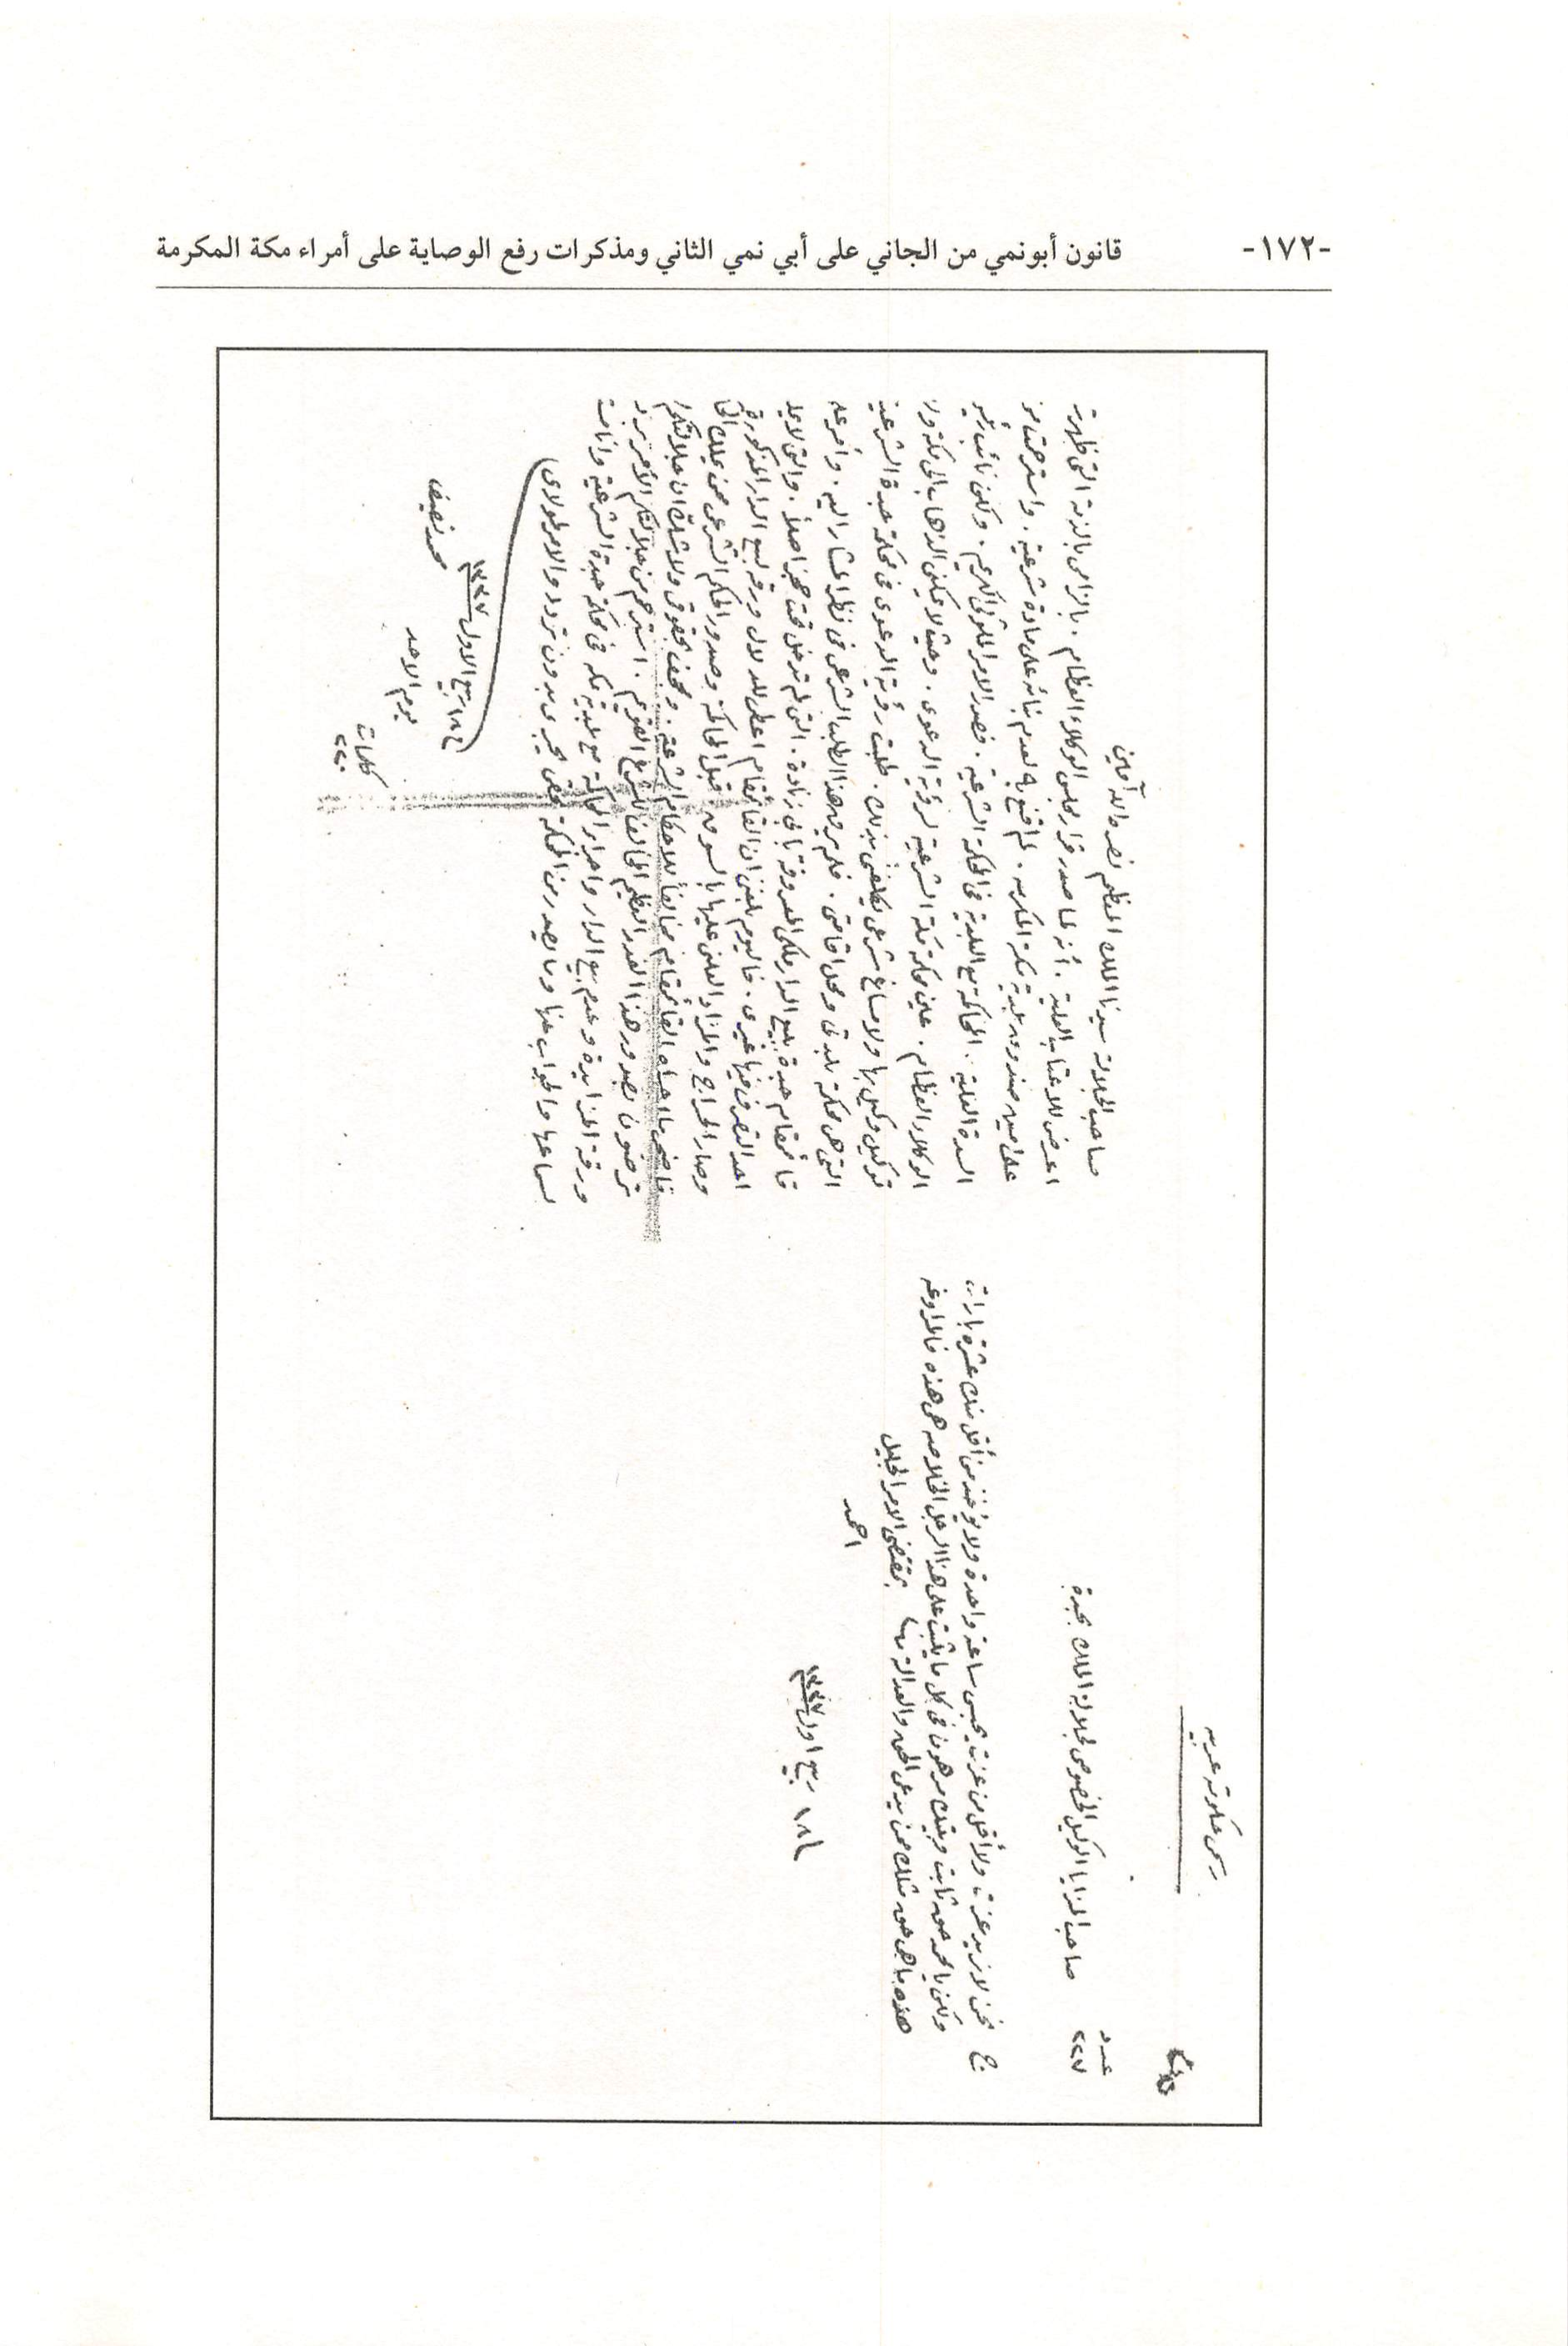 -١٧٢- قانون أبونمي من الجاني على أبي نمي الثاني ومذكرات رفع الوصاية على أمراء مكة المكرمة
عدد
٢٢٧
صاحب المزايا الوكيل الخصوصي لجلالة الملك بجدة
ج نحن لا نريد عزت ولا أقل من عزت يحبس ساعة واحدة ولا يؤخذ من أقل منك عشرة بارات
ولكن يا محمد حق ثابت وبقيت مرهونا في كل ما يثبت على هذا الرجل الخلاصه هي هذه فالمراوغه
هذه ما هي حق مثلك ممن يدعي الحق والعدالة بمقتضى الامر الجليل
احمد
١٨ ربيع اول ١٣٣٧
صاحب الجلالة سيدنا الملك المعظم نصره الله آمين
اعرض للاعتاب العلية . أنه لما صدر قرار مجلس الوكلاء العظام . بالزامي بالذمة التي ظهرت
على امين صندوق بلدية مكة المكرمه . لم اقنع به لعدم بنائه على مادة شرعية . واسترحمت من
السدة العلية . المحاكمة مع البلدية في المحكمة الشرعية . فصدر الامر الملوكي الكريم . ولكن نائب رئيس
الوكلاء العظام . عين محكمة مكة الشرعية لرؤية الدعوى . وحيث لا يمكنني الذهاب الى مكة ولا
توكيل وكيل بها ولا مساغ شرعي يكلفني بذلك . طلبت رؤية الدعوى في محكمة جدة الشرعية
التي هي محكمة بلدتي ومحل اقامتي . فلم يرق هذا الطلب الشرعي في نظر المشار اليه . وأمر على
قائمقام جدة ببيع الدار ملكي المعروفة بابي زنادة . التي لم تدخل تحت حجز اصلاً . والتي لا يملك
احد التصرف فيها غيري . فاليوم بلغني ان القائمقام اعطى للدلال ورقه لبيع الدار المذكورة
وصار الحراج والمزاد العلني عليها بالسوق . قبل المحاكمة وصدور الحكم الشرعي ممن يملك الحكم
فاضحى ما اجراه القائمقام مخالفاً للاحكام الشرعية . ومجحف بحقوقي ولا شك ان جلالتكم لا
ترضون بصدور هذا الغدر العظيم المخالف للشرع القويم . استرحم من جلالتكم الأمر برد
ورقة المزايدة وعدم بيع الدار واجراء المحاكمة مع بلدية مكه في محكمة جدة الشرعية وانا بت
لسماعها والجواب عنها وما يصدر من المحكمة بحقي يجرى بدون تردد والامر لمولاي
في ١٨ ربيع الاول ١٣٣٧
محمد نصيف
يوم الاحد
كلمات
٢٢٠